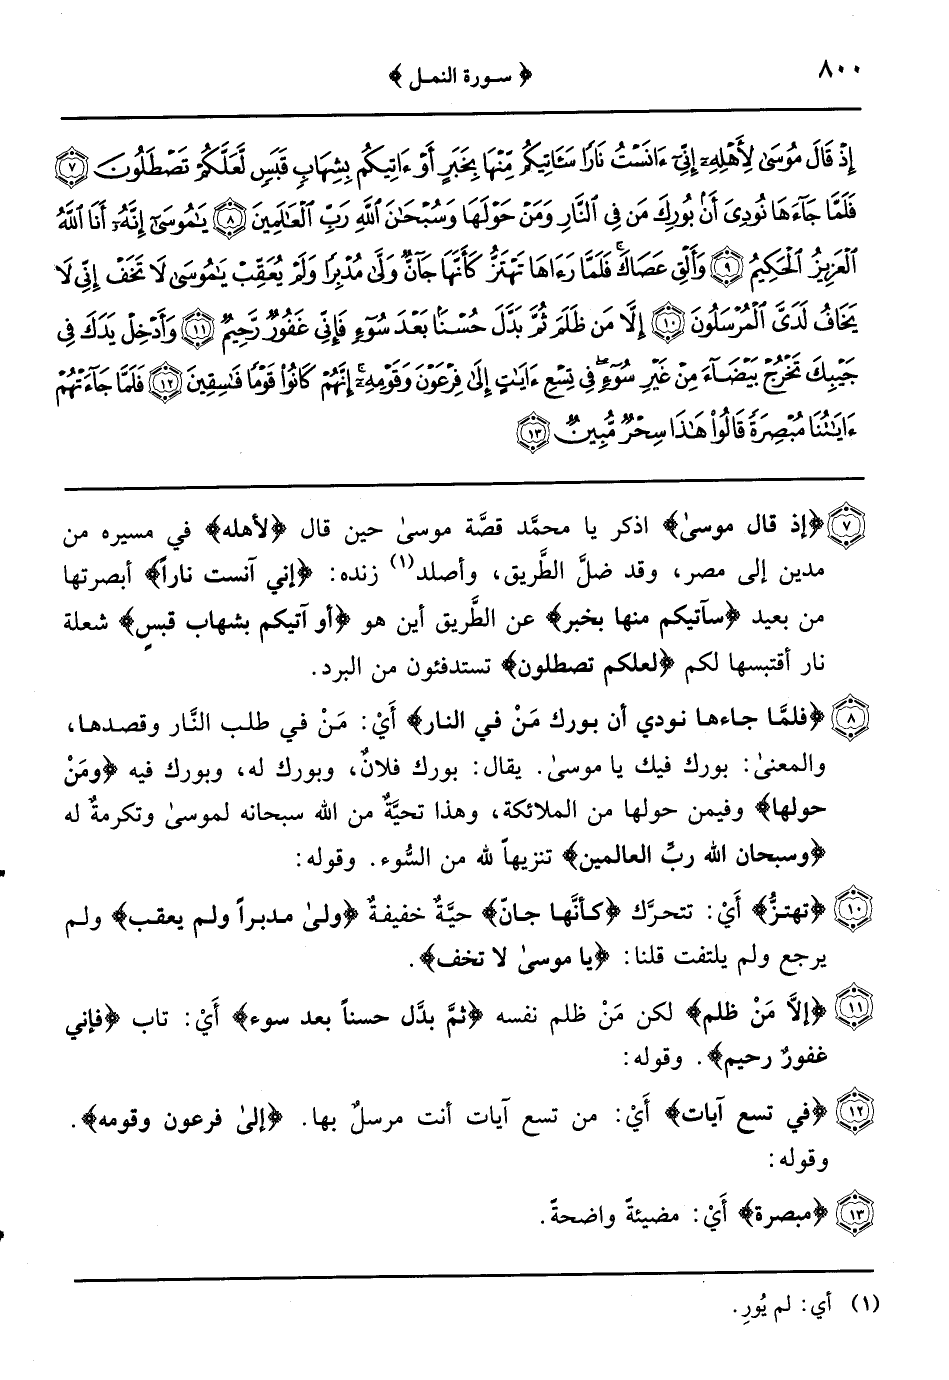 ٨٠٠
﴿ سورة النمل ﴾
إِذْ قَالَ مُوسَىٰ لِأَهْلِهِۦٓ إِنِّىٓ ءَانَسْتُ نَارًا سَـَٔاتِيكُم مِّنْهَا بِخَبَرٍ أَوْ ءَاتِيكُم بِشِهَابٍ قَبَسٍ لَّعَلَّكُمْ تَصْطَلُونَ ۝٧
فَلَمَّا جَآءَهَا نُودِىَ أَنۢ بُورِكَ مَن فِى ٱلنَّارِ وَمَنْ حَوْلَهَا وَسُبْحَـٰنَ ٱللَّهِ رَبِّ ٱلْعَـٰلَمِينَ ۝٨ يَـٰمُوسَىٰٓ إِنَّهُۥٓ أَنَا ٱللَّهُ
ٱلْعَزِيزُ ٱلْحَكِيمُ ۝٩ وَأَلْقِ عَصَاكَ ۚ فَلَمَّا رَءَاهَا تَهْتَزُّ كَأَنَّهَا جَآنٌّ وَلَّىٰ مُدْبِرًا وَلَمْ يُعَقِّبْ يَـٰمُوسَىٰ لَا تَخَفْ إِنِّى لَا
يَخَافُ لَدَىَّ ٱلْمُرْسَلُونَ ۝١٠ إِلَّا مَن ظَلَمَ ثُمَّ بَدَّلَ حُسْنًۢا بَعْدَ سُوٓءٍ فَإِنِّى غَفُورٌ رَّحِيمٌ ۝١١ وَأَدْخِلْ يَدَكَ فِى
جَيْبِكَ تَخْرُجْ بَيْضَآءَ مِنْ غَيْرِ سُوٓءٍ ۖ فِى تِسْعِ ءَايَـٰتٍ إِلَىٰ فِرْعَوْنَ وَقَوْمِهِۦٓ ۚ إِنَّهُمْ كَانُوا۟ قَوْمًا فَـٰسِقِينَ ۝١٢ فَلَمَّا جَآءَتْهُمْ
ءَايَـٰتُنَا مُبْصِرَةً قَالُوا۟ هَـٰذَا سِحْرٌ مُّبِينٌ ۝١٣
٧ ﴿إذ قال موسىٰ﴾ اذكر يا محمَّد قصَّة موسىٰ حين قال ﴿لأهله﴾ في مسيره من
مدين إلى مصر، وقد ضلَّ الطَّريق، وأصلد(١) زنده: ﴿إني آنست ناراً﴾ أبصرتها
من بعيد ﴿سآتيكم منها بخبر﴾ عن الطَّريق أين هو ﴿أو آتيكم بشهاب قبسٍ﴾ شعلة
نار أقتبسها لكم ﴿لعلكم تصطلون﴾ تستدفئون من البرد.
٨ ﴿فلمَّا جاءها نودي أن بورك مَنْ في النار﴾ أَيْ: مَنْ في طلب النَّار وقصدها،
والمعنىٰ: بورك فيك يا موسىٰ. يقال: بورك فلانٌ، وبورك له، وبورك فيه ﴿ومَنْ
حولها﴾ وفيمن حولها من الملائكة، وهذا تحيَّةٌ من الله سبحانه لموسىٰ وتكرمةٌ له
﴿وسبحان الله ربِّ العالمين﴾ تنزيهاً لله من السُّوء. وقوله:
١٠ ﴿تهتزُّ﴾ أَيْ: تتحرَّك ﴿كأنَّها جانّ﴾ حيَّةٌ خفيفةٌ ﴿ولىٰ مدبراً ولم يعقب﴾ ولم
يرجع ولم يلتفت قلنا: ﴿يا موسىٰ لا تخف﴾.
١١ ﴿إلاَّ مَنْ ظلم﴾ لكن مَنْ ظلم نفسه ﴿ثمَّ بدَّل حسناً بعد سوء﴾ أَيْ: تاب ﴿فإني
غفورٌ رحيم﴾. وقوله:
١٢ ﴿في تسع آيات﴾ أَيْ: من تسع آيات أنت مرسلٌ بها. ﴿إلىٰ فرعون وقومه﴾.
وقوله:
١٣ ﴿مبصرة﴾ أَيْ: مضيئةً واضحةً.
(١) أي: لم يُورِ.